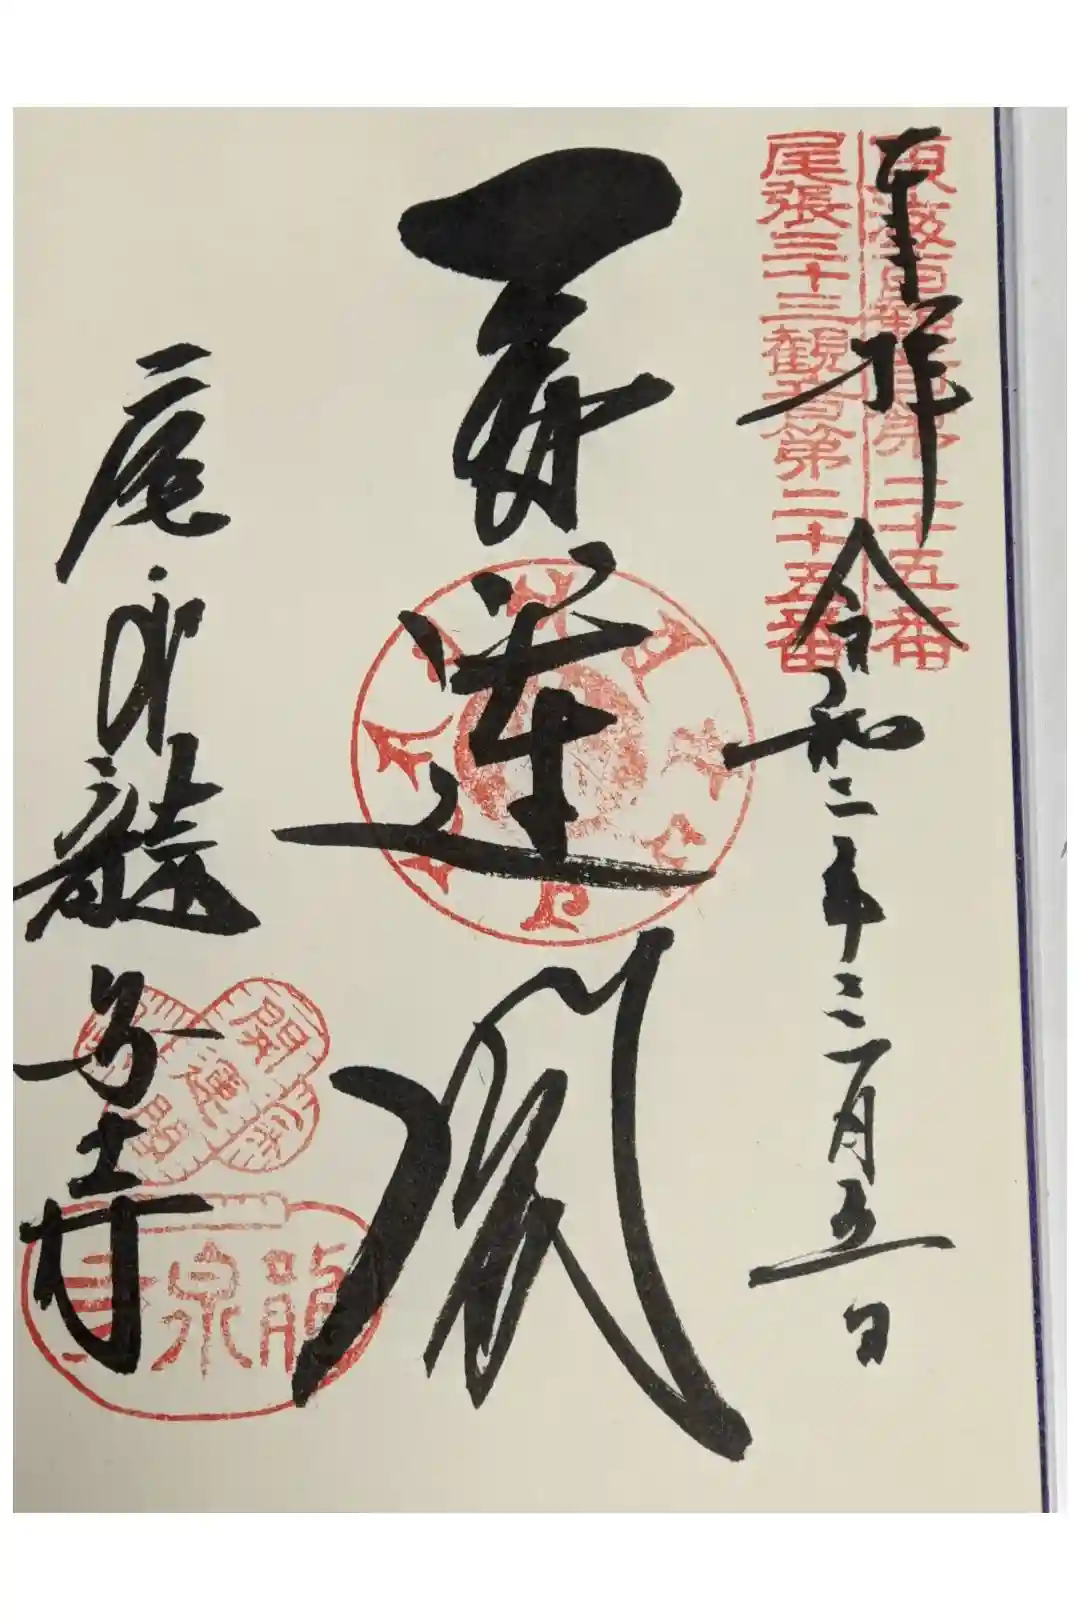 奉拝
令和二年三月五日
東海百観音第二十五番
尾張三十三観音第二十五番
蓮
尾州龍泉寺
開運
龍泉寺